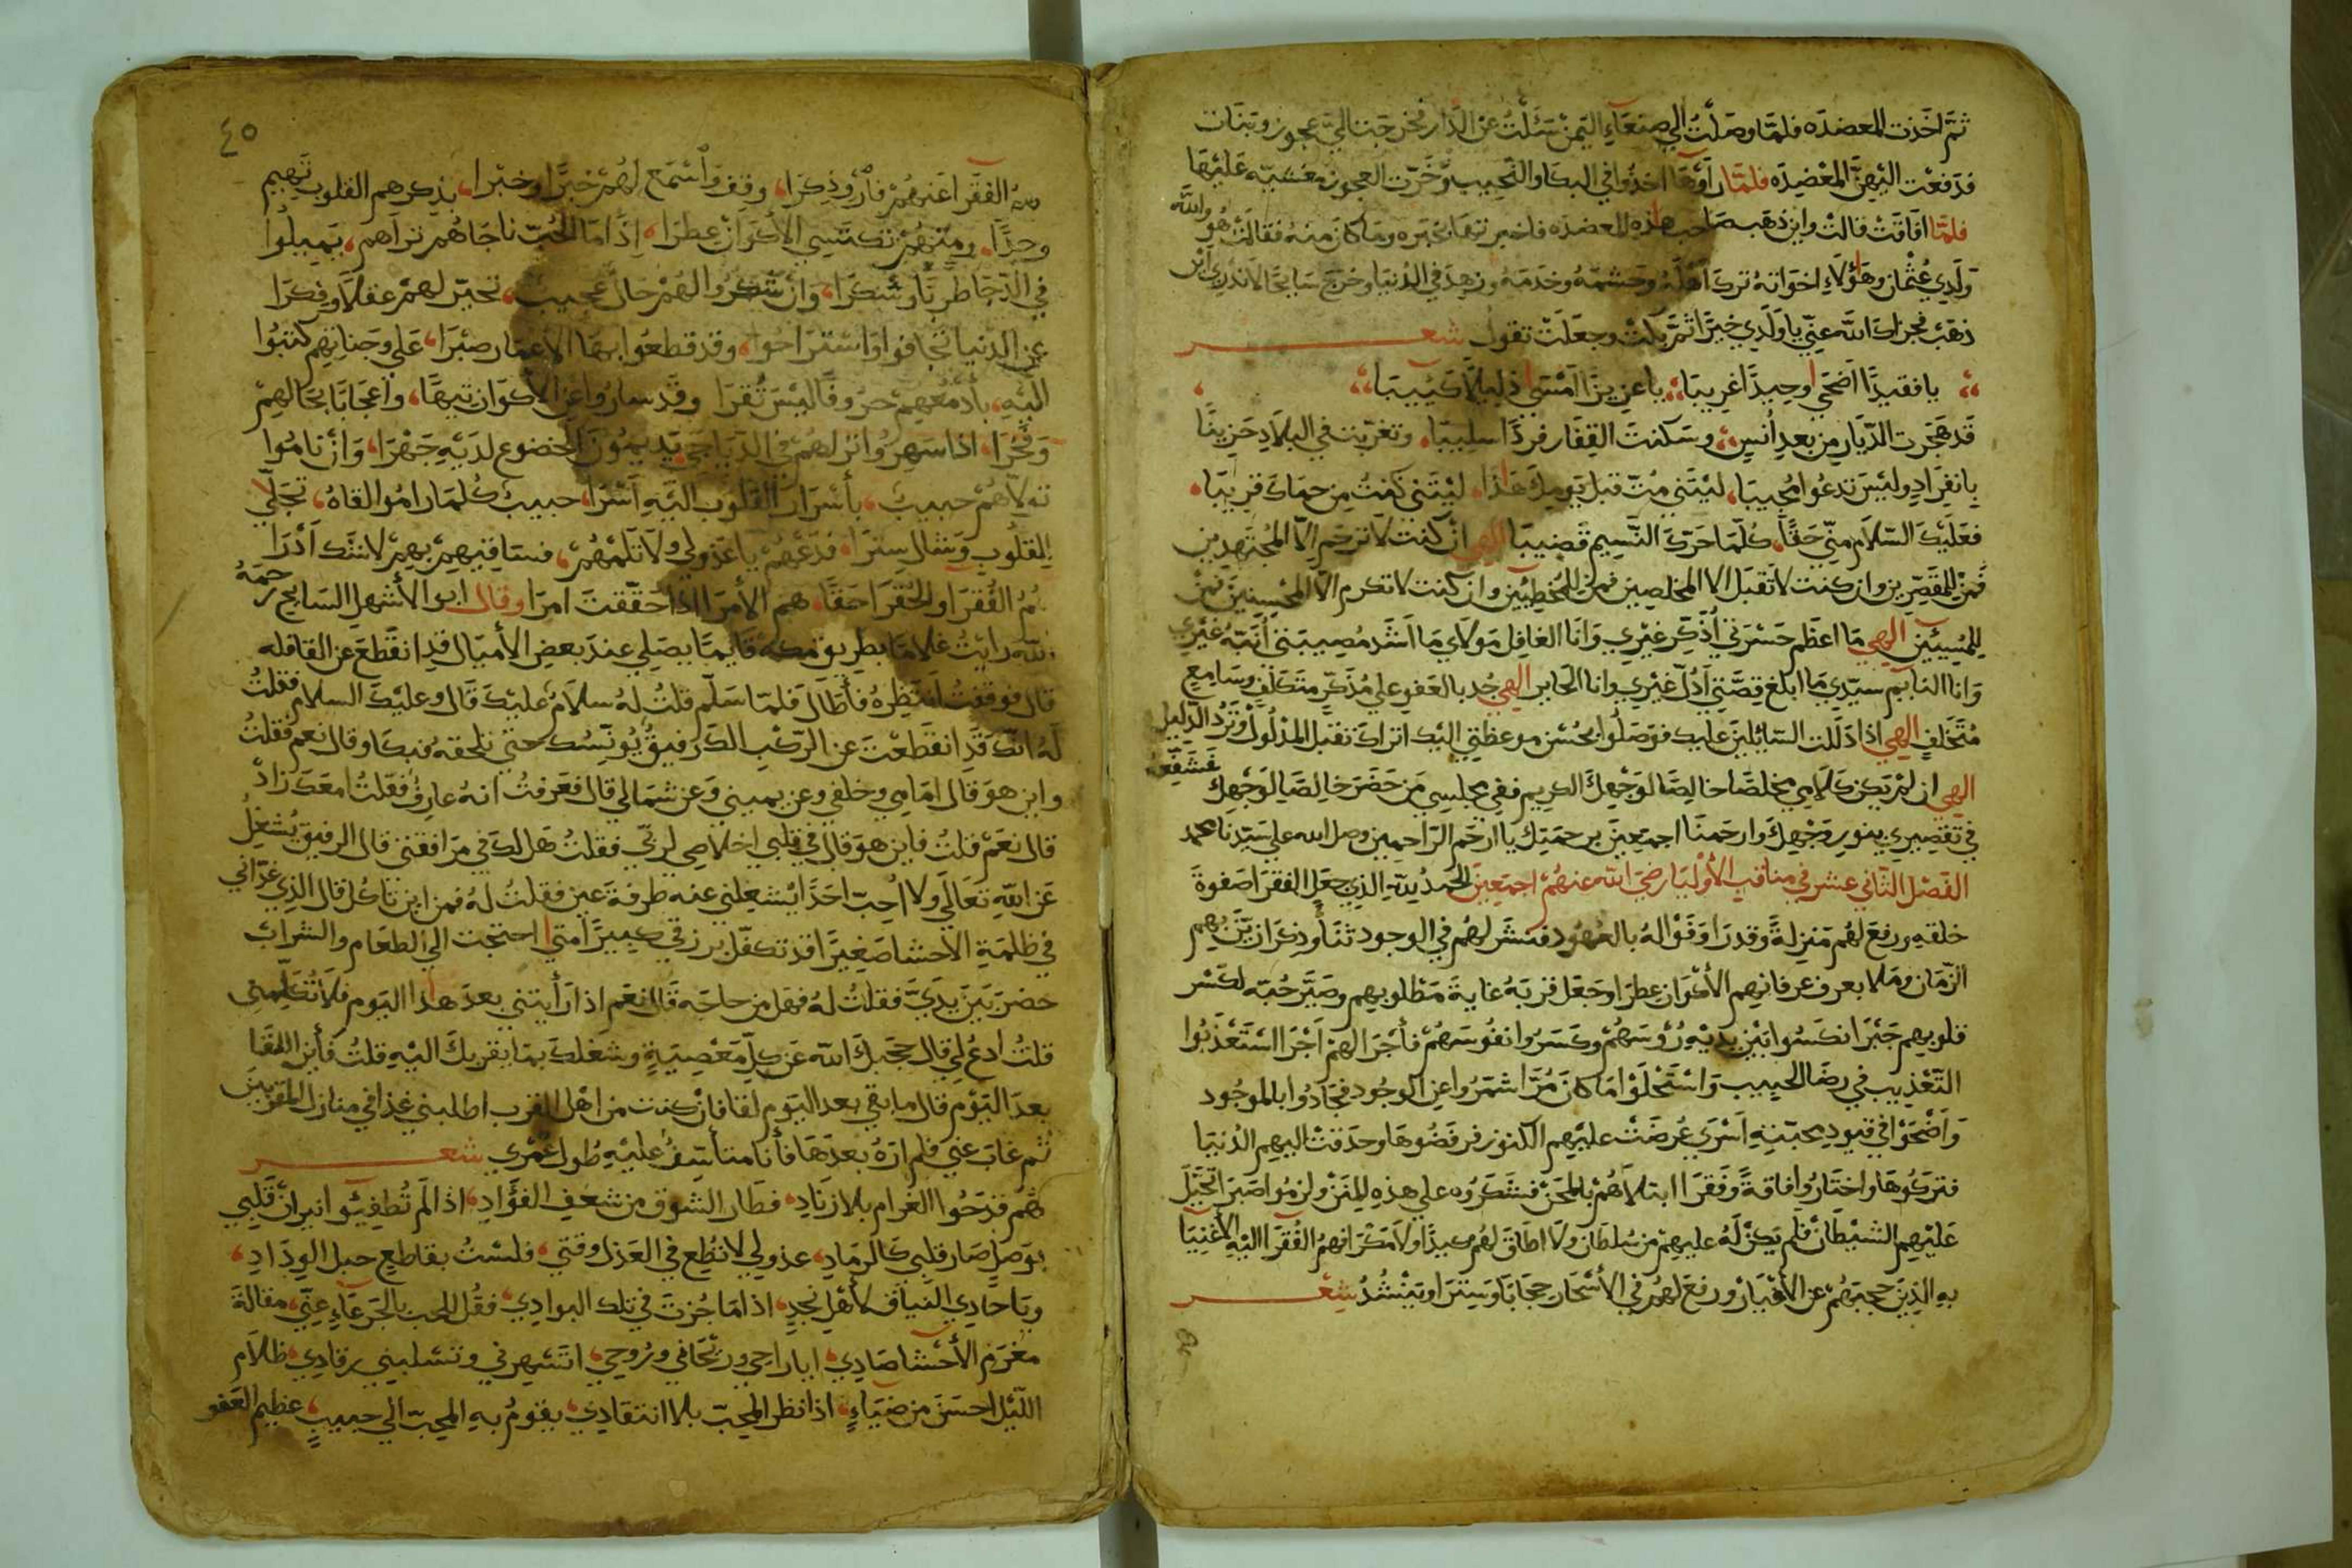 ثمّ اخذت المعضده فلمّا وصلت الي صنعاء اليمن سئلت عن الدّار فخرجت اليّ عجوز وبنات
فدفعت اليهنّ المعضده فلمّا راوها اخذوا في البكا والنحيب وخرّت العجوز مغشيّه عليها
فلمّا افاقت قالت واين ذهب صاحب هذه المعضده فاخبرتها بخبره وما كان منه فقالت هو والله
ولدي عثمان وهؤلاء اخواته ترك اهله وحشمه وخدمه وزهد في الدنيا وخرج سايحا لا ندري اين
ذهب فجزاك الله عنّي يا ولدي خيرًا ثمّ بكت وجعلت تقول شعر
يا فقيدًا اضحي وحيدًا غريبا يا عزيزًا امسي ذليلًا كئيبا
قد هجرت الدّيار من بعد أنس وسكنت القفار فردًا سليبًا وتغرّبت في البلاد حزينًا
بانفراد وليس تدعوا مجيبا ليتني متّ قبل يومك هذا ليتني كنت من حماك قريبًا
فعليك السّلام منّي حقًّا كلّما حرّك النّسيم قضيبا الهي ان كنت لا ترحم الّا المجتهدين
فمن للمقصّرين وان كنت لا تقبل الا المخلصين فمن للمخطئين وان كنت لا تكرم الّا المحسنين فمن
للمسيئين الهي ما اعظم حسرتي أذكّر غيري وانا الغافل مولاي ما اشد مصيبتي أنبّه غيري
وانا النايم سيّدي ما ابلغ قصّتي أدلّ غيري وانا الحاير الهي جد بالعفو علي مذكّر متكلّف وسامع
متخلّف الهي اذا دللت السّائلين عليك فوصلوا بحسن موعظتي اليك اتراك تقبل المدلول وترد الدليل
الهي ان لم يكن كلامي مخلصًا خالصًا لوجهك الكريم ففي مجلسي من حضر خالصًا لوجهك فشفّعه
في تقصيري بنور وجهك وارحمنا اجمعين برحمتك يا ارحم الرّاحمين وصل الله علي سيّدنا محمد
الفصل الثاني عشر في مناقب الأوليا رضي الله عنهم اجمعين الحمد لله الذي جعل الفقرا صفوة
خلقه ورفع لهم منزلةً وقدرا ووفّوا له بالعهود فنشر لهم في الوجود ثناً وذكرا زيّن بهم
الزّمان وملا بعرف عرفانهم الأكوان عطرا وجعل قربه غاية مطلوبهم وصيّر حبّه لكسر
قلوبهم جبرا نكسوا بين يديه رؤسهم وكسروا نفوسهم فأجرا لهم اجرا استعذبوا
التّعذيب في رضا الحبيب واستحلوا ما كان مرّا شمّروا عن الوجود فجادوا بالموجود
واضحوا في قيود محبّته اسري عرضت عليهم الكنوز فرفضوها وحدقت اليهم الدنيا
فتركوها واختاروا فاقةً وفقرا ابتلاهم بالمحن فشكروه علي هذه المنن ولزموا صبرا تحيّل
عليهم الشيطان فلم يكن له عليهم من سلطان ولا اطاق لهم كيدًا ولا مكرا فهم الفقرا اليه الأغنيا
به الذين حجبهم عن الأغيار ورفع لهم في الأسحار حجابًا وسترا وينشد شعر
٤٥
الفقرا عنهم فأروِ ذكرا وقف وأسمع لهم خبرًا وخبرا بذكرهم القلوب تهيم
وجدًا ومنهم تكتسي الأكوان عطرا اذا ما الحبّ ناجاهم تراهم يميلوا
في الدّجا طربًا وشكرا وان شكروا لهم حال عجيب تحيّر لهم عقلًا وفكرا
عن الدنيا تجافوا واستراحوا وقد قطعوا بها الأعمار صبرا علي وجناتهم كتبوا
اليه بأدمعهم حروفًا ليس تقرا وقد ساروا عن الأكوان تيهًا واعجابًا بحالهم
وفخرا اذا سهروا تراهم في الدّياجي يديمون الخضوع لديه جهرا وان ناموا
تولّاهم حبيب بأسرار القلوب اليه أسرا حبيب كلما راموا لقاه تجلّي
للقلوب وشال سترا فدعهم يا عذولي ولا تلمهم فساقيهم بهم لا شك أدرا
هم الفقرا والحقرا حقًا هم الأمرا اذا حقّقت امرا وقال ابو الأشهل السّايح رحمه
الله رايت غلامًا بطريق مكة قايمًا يصلي عند بعض الأميال قد انقطع عن القافله
قال فوقفت انتظره فأطال فلمّا سلّم قلت له سلام عليك قال وعليك السلام فقلت
له انّك قد انقطعت عن الرّكب الك رفيق يونسك حتي تلحقه فبكا وقال نعم فقلت
واين هو قال امامي وخلفي وعن يميني وعن شمالي قال فعرفت انه عارف فقلت امعك زاد
قال نعم قلت فاين هو قال في قلبي اخلاصي لربّي فقلت هل لك في مرافقتي قال الرفيق يشغل
عن الله تعالي ولا احبّ احدًا يشغلني عنه طرفة عين فقلت له فمن اين تاكل قال الذي غذاني
في ظلمة الأحشا صغيرًا قد تكفّل برزقي كبيرًا متي احتجت الي الطعام والشراب
حضر بين يديّ فقلت له فهل من حاجه قال نعم اذا رأيتني بعد هذا اليوم فلا تكلّمني
قلت ادع لي قال حجبك الله عن كلّ معصيةٍ وشغلك بما يقربك اليه قلت فأين اللقا
بعد اليوم قال ما بقي بعد اليوم لقا فان كنت من اهل القرب اطلبني غدًا في منازل المقرّبين
ثم غاب عني فلم اره بعدها فأنا متأسّف عليه طول عمري شعر
هم قدحوا الغرام بلا زناد فطار الشوق من شغف الفؤاد اذا لم تطفئوا نيران قلبي
بوصل صار قلبي كالرماد عذولي لا تطع في العذل وقتي فلست بقاطع حبل الوداد
ويا حادي النياق لأهل نجد اذا ما جزت في تلك البوادي فقل للحب بالجرعاء عنّي مقالة
مغرم الأحشا صادي ايا راحي وريحاني وروحي اتسهرني وتسلبني رقادي ظلام
اللّيل احسن من ضياء اذا نظر المحبّ بلا انتقادي يقوم به المحبّ الي حبيبٍ عظيم العفو